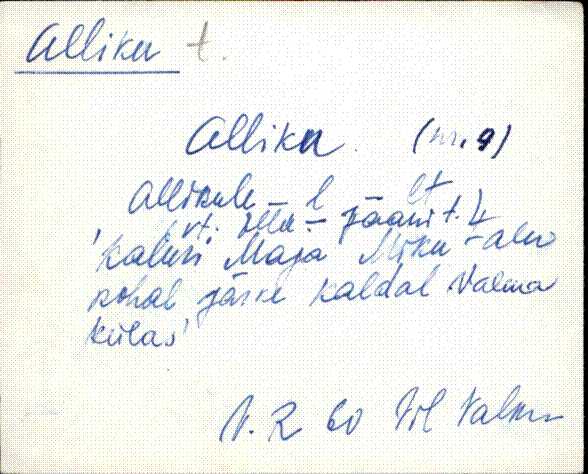 Alliku t.
Alliku (nr. 9)
Allikule - l lt
vt. Jaani t. 4
'kaluri Maja Miku - alev
kohal järve kaldal Valma
külas'
V. R 60 Vil Valma